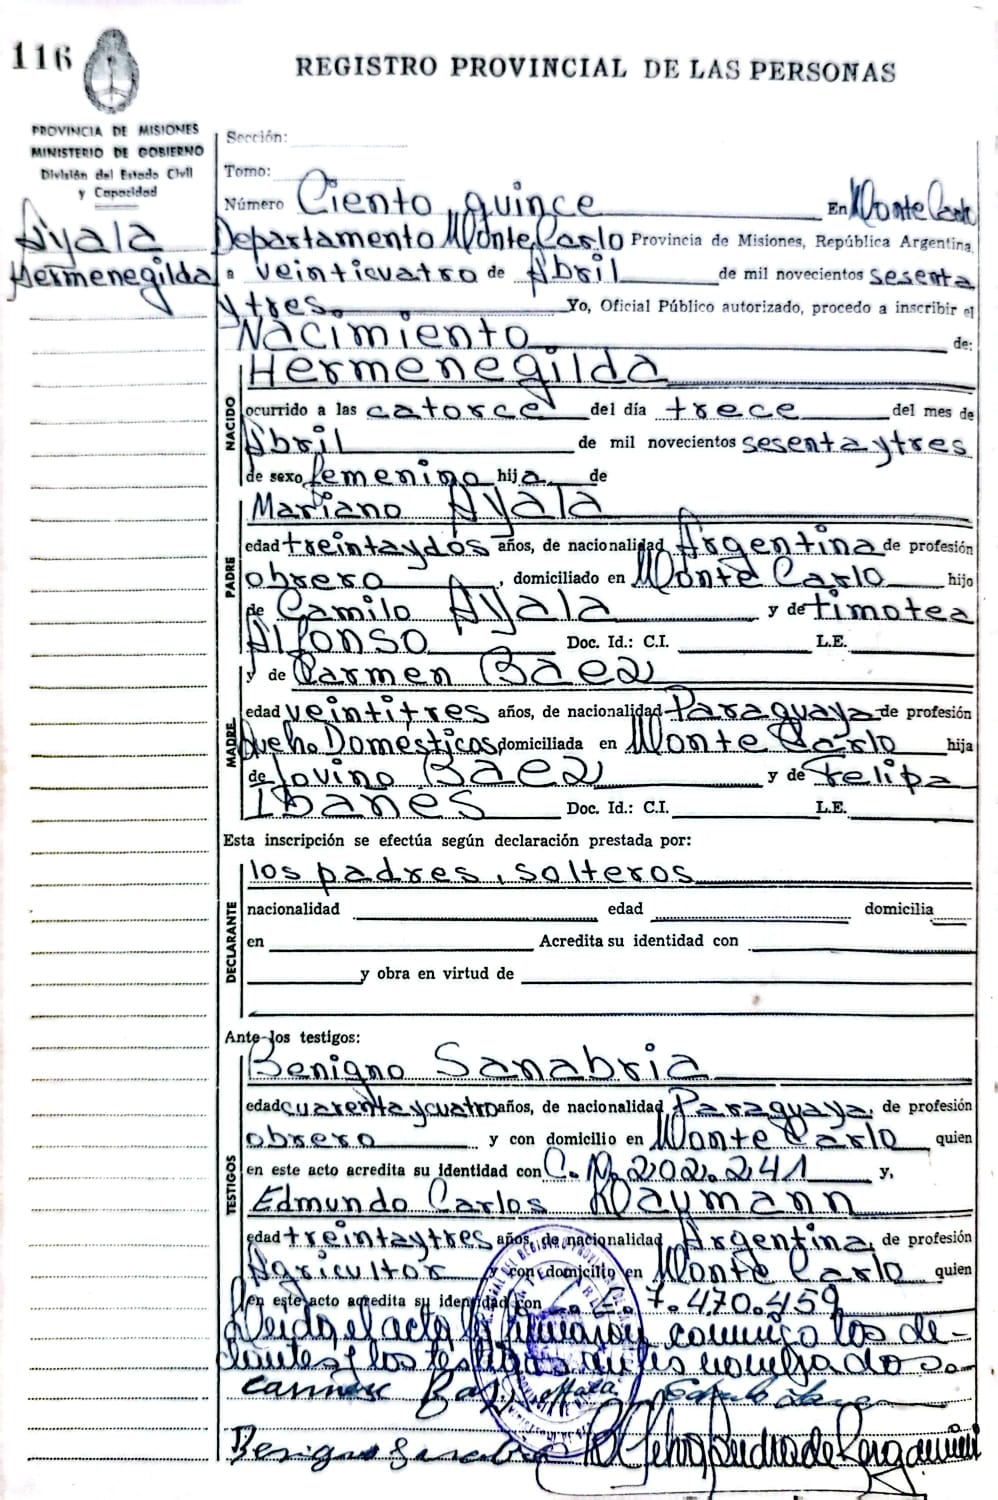 116
REGISTRO PROVINCIAL DE LAS PERSONAS
PROVINCIA DE MISIONES
MINISTERIO DE GOBIERNO
División del Estado Civil
y Capacidad
Ayala
Hermenegilda
Sección:
Tomo:
Número Ciento quince En Monte Carlo
Departamento Monte Carlo Provincia de Misiones, República Argentina,
a veinticuatro de Abril de mil novecientos sesenta
y tres. Yo, Oficial Público autorizado, procedo a inscribir el
Nacimiento de:
NACIDO
Hermenegilda
ocurrido a las catorce del día trece del mes de
Abril de mil novecientos sesenta y tres
de sexo femenino hija de
PADRE
Mariano Ayala
edad treinta y dós años, de nacionalidad Argentina de profesión
obrero, domiciliado en Monte Carlo hijo
de Camilo Ayala y de timotea
Alfonso Doc. Id.: C.I. L.E.
MADRE
y de Carmen Baez
edad veintitres años, de nacionalidad Paraguaya de profesión
Queh. Domésticos, domiciliada en Monte Carlo hija
de Jovino Baez y de Felipa
Ibañes Doc. Id.: C.I. L.E.
Esta inscripción se efectúa según declaración prestada por:
DECLARANTE
los padres, solteros
nacionalidad edad domicilia
en Acredita su identidad con
y obra en virtud de
Ante los testigos:
TESTIGOS
Benigno Sanabria
edad cuarenta y cuatro años, de nacionalidad Paraguaya, de profesión
obrero y con domicilio en Monte Carlo quien
en este acto acredita su identidad con C. N. 202.241 y,
Edmundo Carlos
edad treinta y tres años, de nacionalidad Argentina, de profesión
Agricultor y con domicilio en Monte Carlo quien
en este acto acredita su identidad con 7.470.459
Leída el acta la firmaron conmigo los de-
clantes y los testigos antes nombrados.
Carmen Baez
Benigno Sanabria